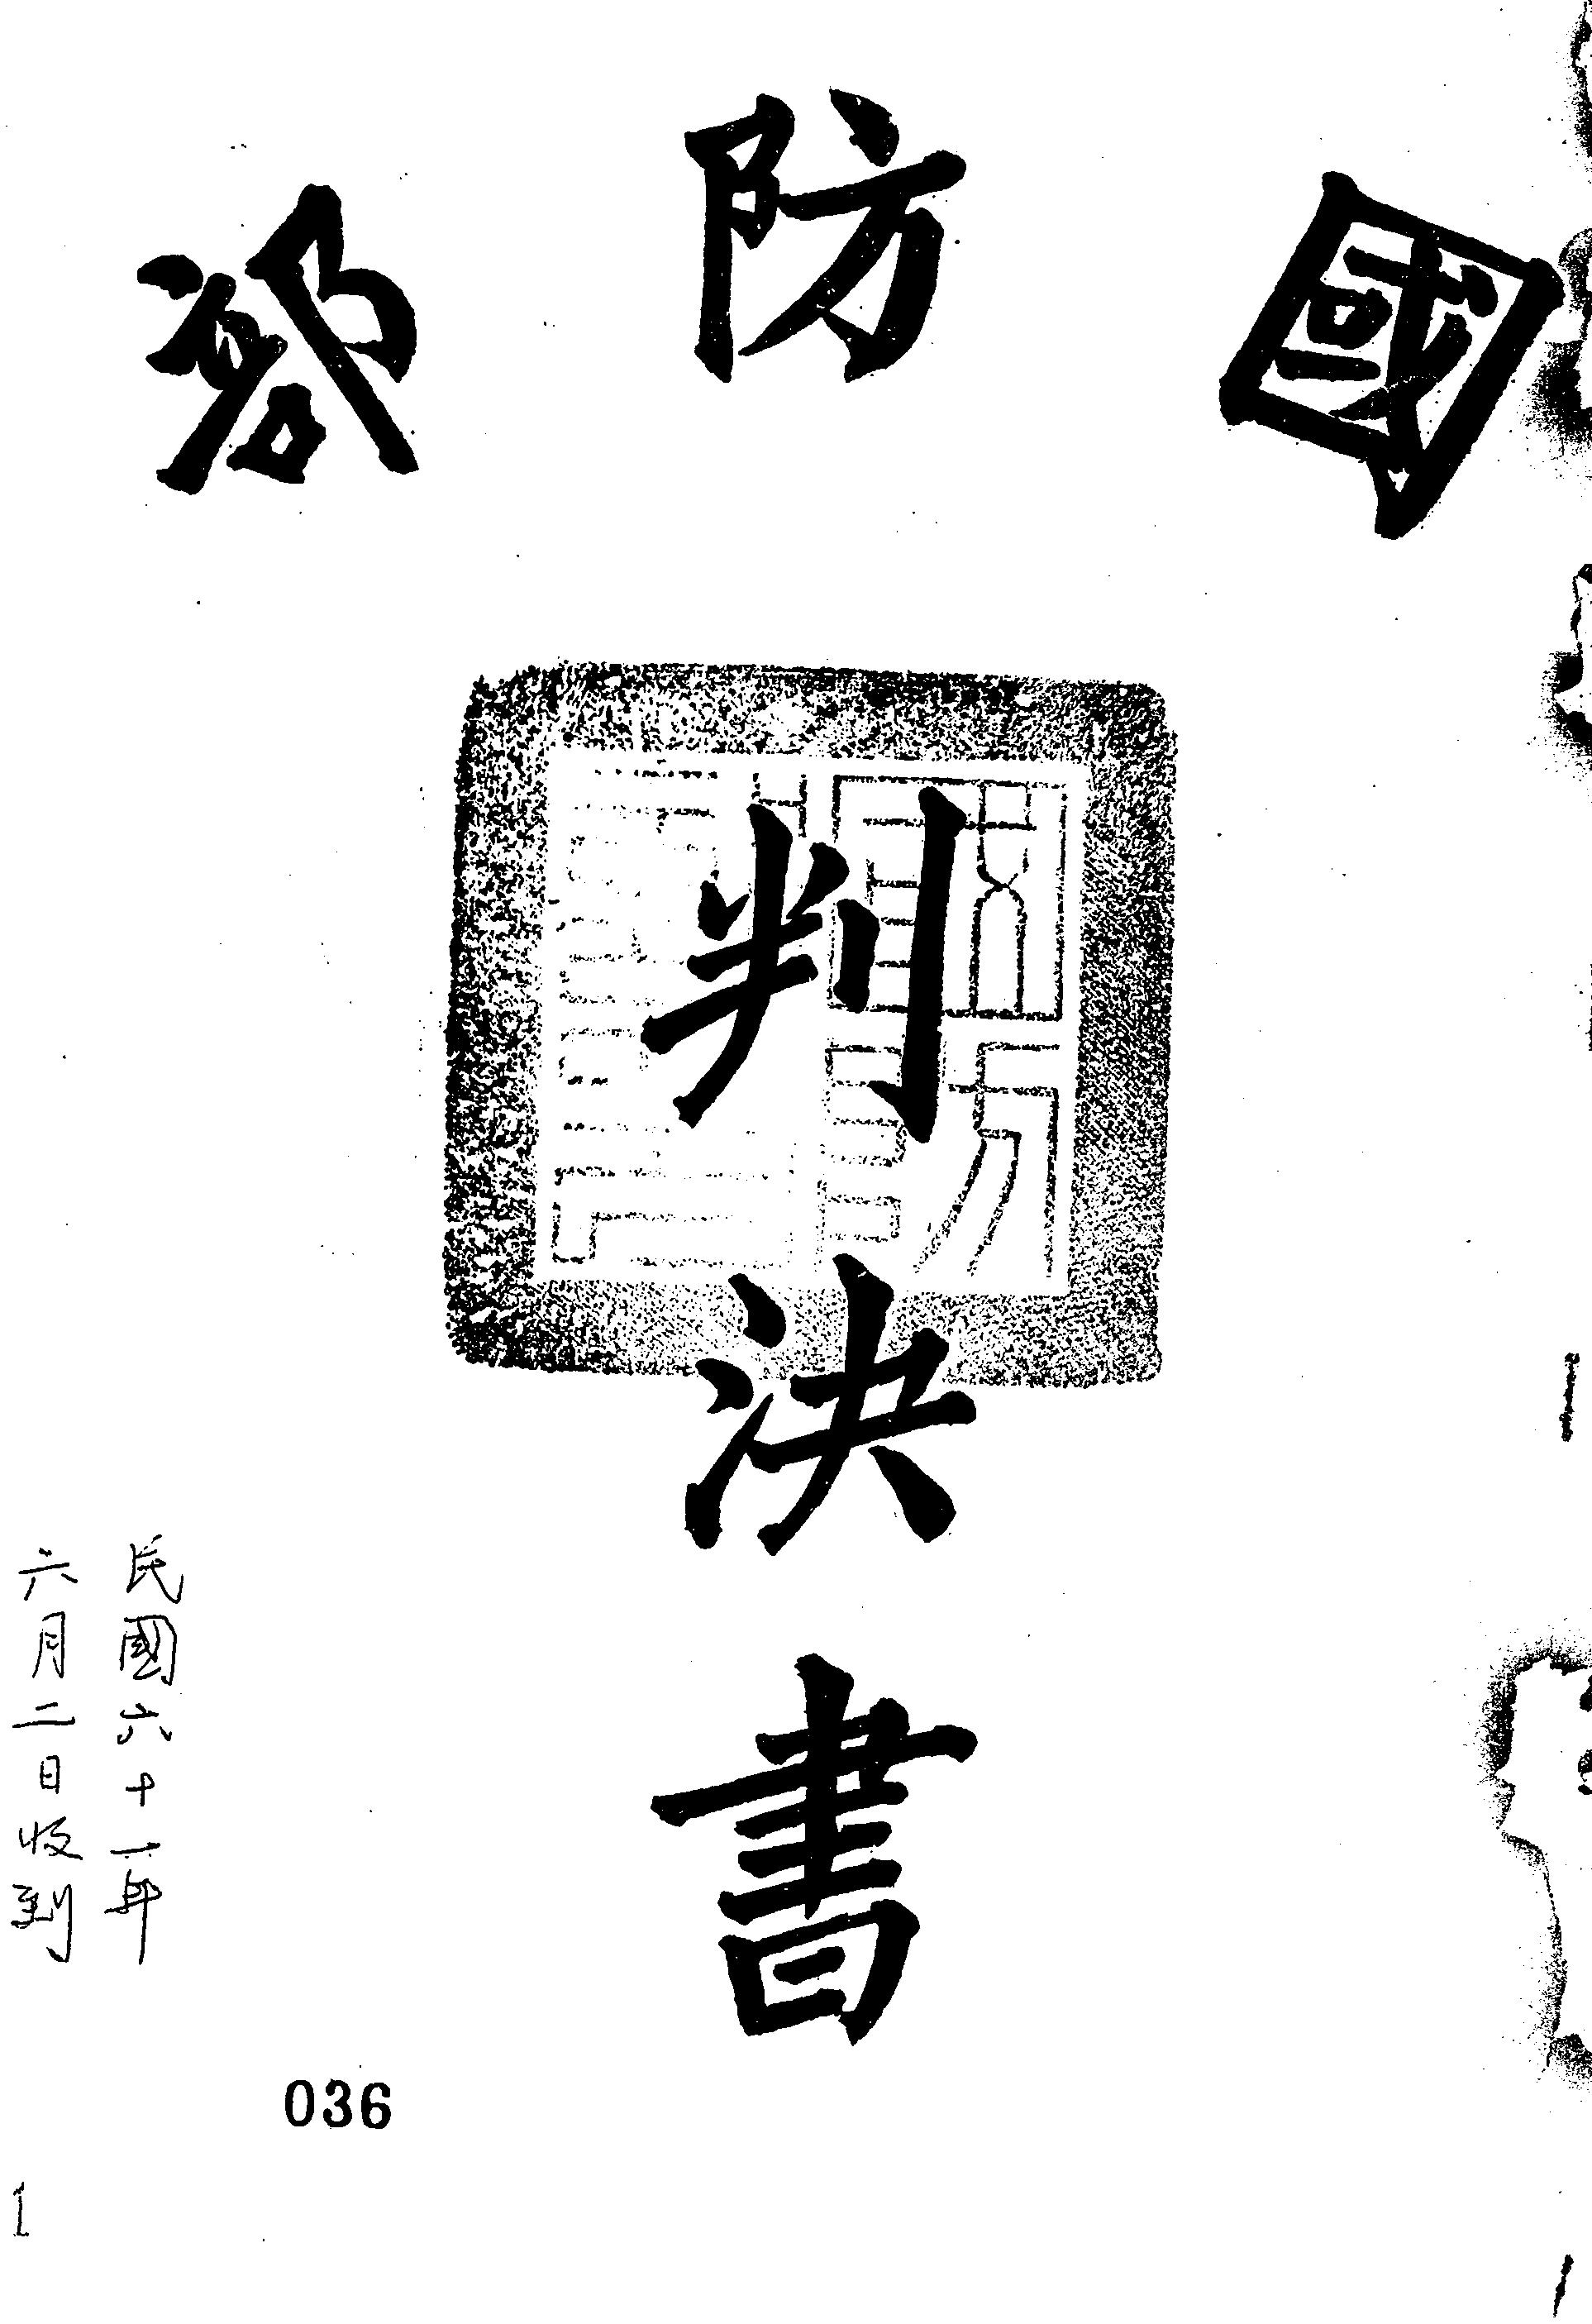 國防部
判決書
民國六十一年
六月二日收到
036
1